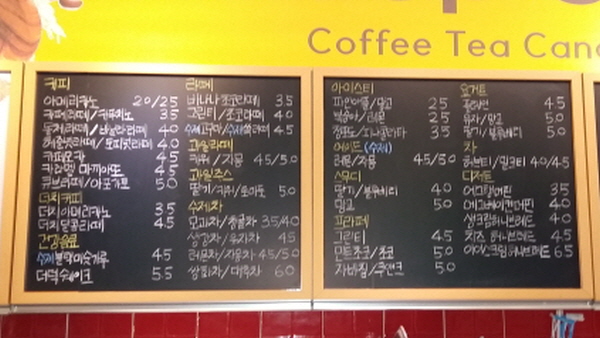 Coffee Tea Cand
커피
아메리카노 2.0/2.5
카페라떼/카푸치노 3.5
동체라떼/바닐라라떼 4.0
헤이즐넛라떼/토피넛라떼 4.0
카페모카 4.5
카라멜 마끼아또 4.5
큐브라떼/아포가토 5.0
더치커피
더치아메리카노 3.5
더치달콤라떼 4.5
건강음료
수제블랙미숫가루 4.5
더덕쉐이크 5.5
라떼
바나나/초코라떼 3.5
그린티/초코라떼 4.0
수제고구마/수제쑥라떼 4.5
과일라떼
키위/자몽 4.5/5.0
과일쥬스
딸기/키위/토마토 5.0
수제차
모과차/청귤차 3.5/4.0
생강차/유자차 4.5
레몬차/자몽차 4.5/5.0
쌍화차/대추차 6.0
아이스티
파인애플/망고 2.5
복숭아/레몬 2.5
청포도/피나콜라다 3.5
에이드(수제)
레몬/자몽 4.5/5.0
스무디
딸기/블루베리 4.0
망고 5.0
프라페
그린티 4.5
민트초코/초코 5.0
자바칩/쿠앤크 5.0
요거트
플레인 4.5
유자/망고 5.0
딸기/블루베리 5.0
차
허브티/밀크티 4.0/4.5
디저트
에그머핀 3.5
에그베이컨머핀 4.0
생크림허니브레드 4.0
치즈 허니브레드 4.5
아이스크림허니브레드 6.5